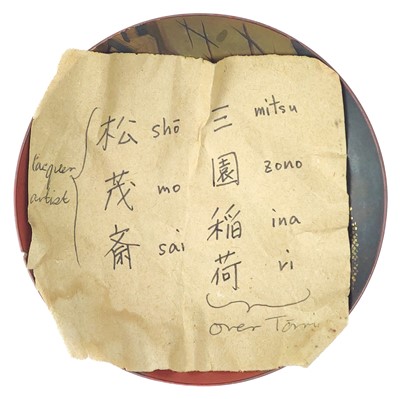 lacquer
artist
松 shō
茂 mo
斎 sai
三 mitsu
園 zono
稲 ina
荷 ri
over